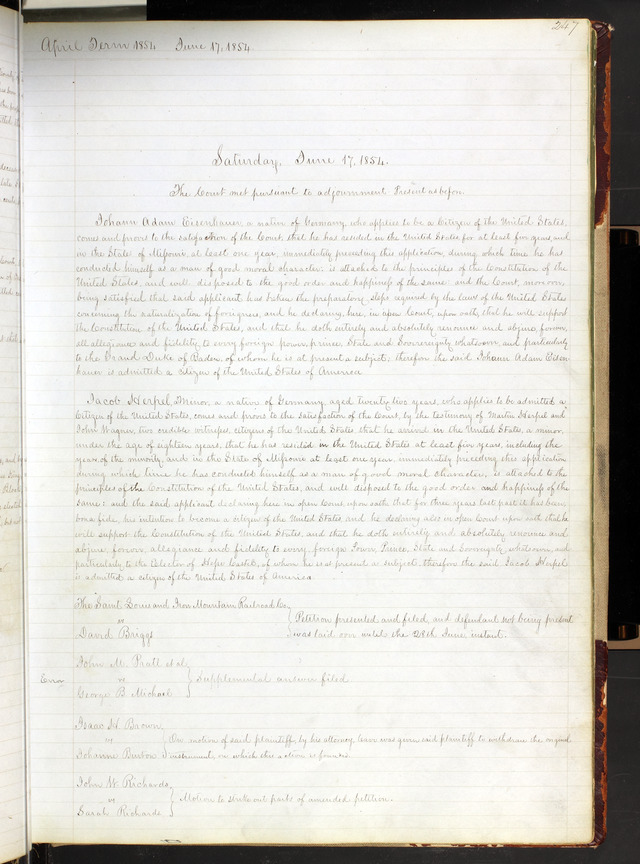 247
April Term 1854 June 17, 1854.
Saturday, June 17, 1854.
The Court met pursuant to adjournment. Present as before.
Johann Adam Eisenhauer, a native of Germany, who applies to be a Citizen of the United States,
comes and proves to the satisfaction of the Court, that he has resided in the United States for at least five years, and
in the State of Missouri at least one year, immediately preceding this application, during which time he has
conducted himself as a man of good moral character; is attached to the principles of the Constitution of the
United States, and well disposed to the good order and happiness of the same; and the Court, moreover,
being satisfied that said applicant has taken the preparatory steps required by the laws of the United States
concerning the naturalization of foreigners, and he declaring, here, in open Court, upon oath, that he will support
the Constitution of the United States, and that he doth entirely and absolutely renounce and abjure, forever,
all allegiance and fidelity, to every foreign power, prince, State and Sovereignty whatsoever, and particularly
to the Grand Duke of Baden, of whom he is at present a subject; therefore the said Johann Adam Eisen-
hauer is admitted a citizen of the United States of America.
Jacob Herpel Minor, a native of Germany, aged twenty two years, who applies to be admitted a
Citizen of the United States, comes and proves to the satisfaction of the Court, by the testimony of Martin Herpel and
John Wagner, two credible witnesses, citizens of the United States that he arrived in the United States, a minor,
under the age of eighteen years, that he has resided in the United States at least five years, including the
years of the minority, and in the State of Missouri at least one year, immediately preceding this application
during which time he has conducted himself as a man of good moral character, is attached to the
principles of the Constitution of the United States, and well disposed to the good order and happiness of the
same; and the said applicant declaring here in open Court upon oath that for three years last past it has been,
bona fide, his intention to become a citizen of the United States and he declaring also in open Court upon oath that he
will support the Constitution of the United States, and that he doth entirely and absolutely renounce and
abjure, forever allegiance and fidelity to every foreign Power, Prince, State and Sovereignty whatsoever, and
particularly to the Elector of Hesse Cassel, of whom he is at present a subject, therefore the said Jacob Herpel
is admitted a citizen of the United States of America.
The Saint Louis and Iron Mountain Railroad Co.
vs
David Briggs
Petition presented and filed, and defendant not being present
was laid over until the 28th June instant.
John M. Pratt et al
Error vs Supplemental answer filed
George B. Michael
Isaac H. Brown
vs On motion of said plaintiff, by his attorney, leave was given said plaintiff to withdraw the original
Johanne instrument, on which this action is founded.
John W. Richards
vs Motion to strike out parts of amended petition.
Sarah Richards